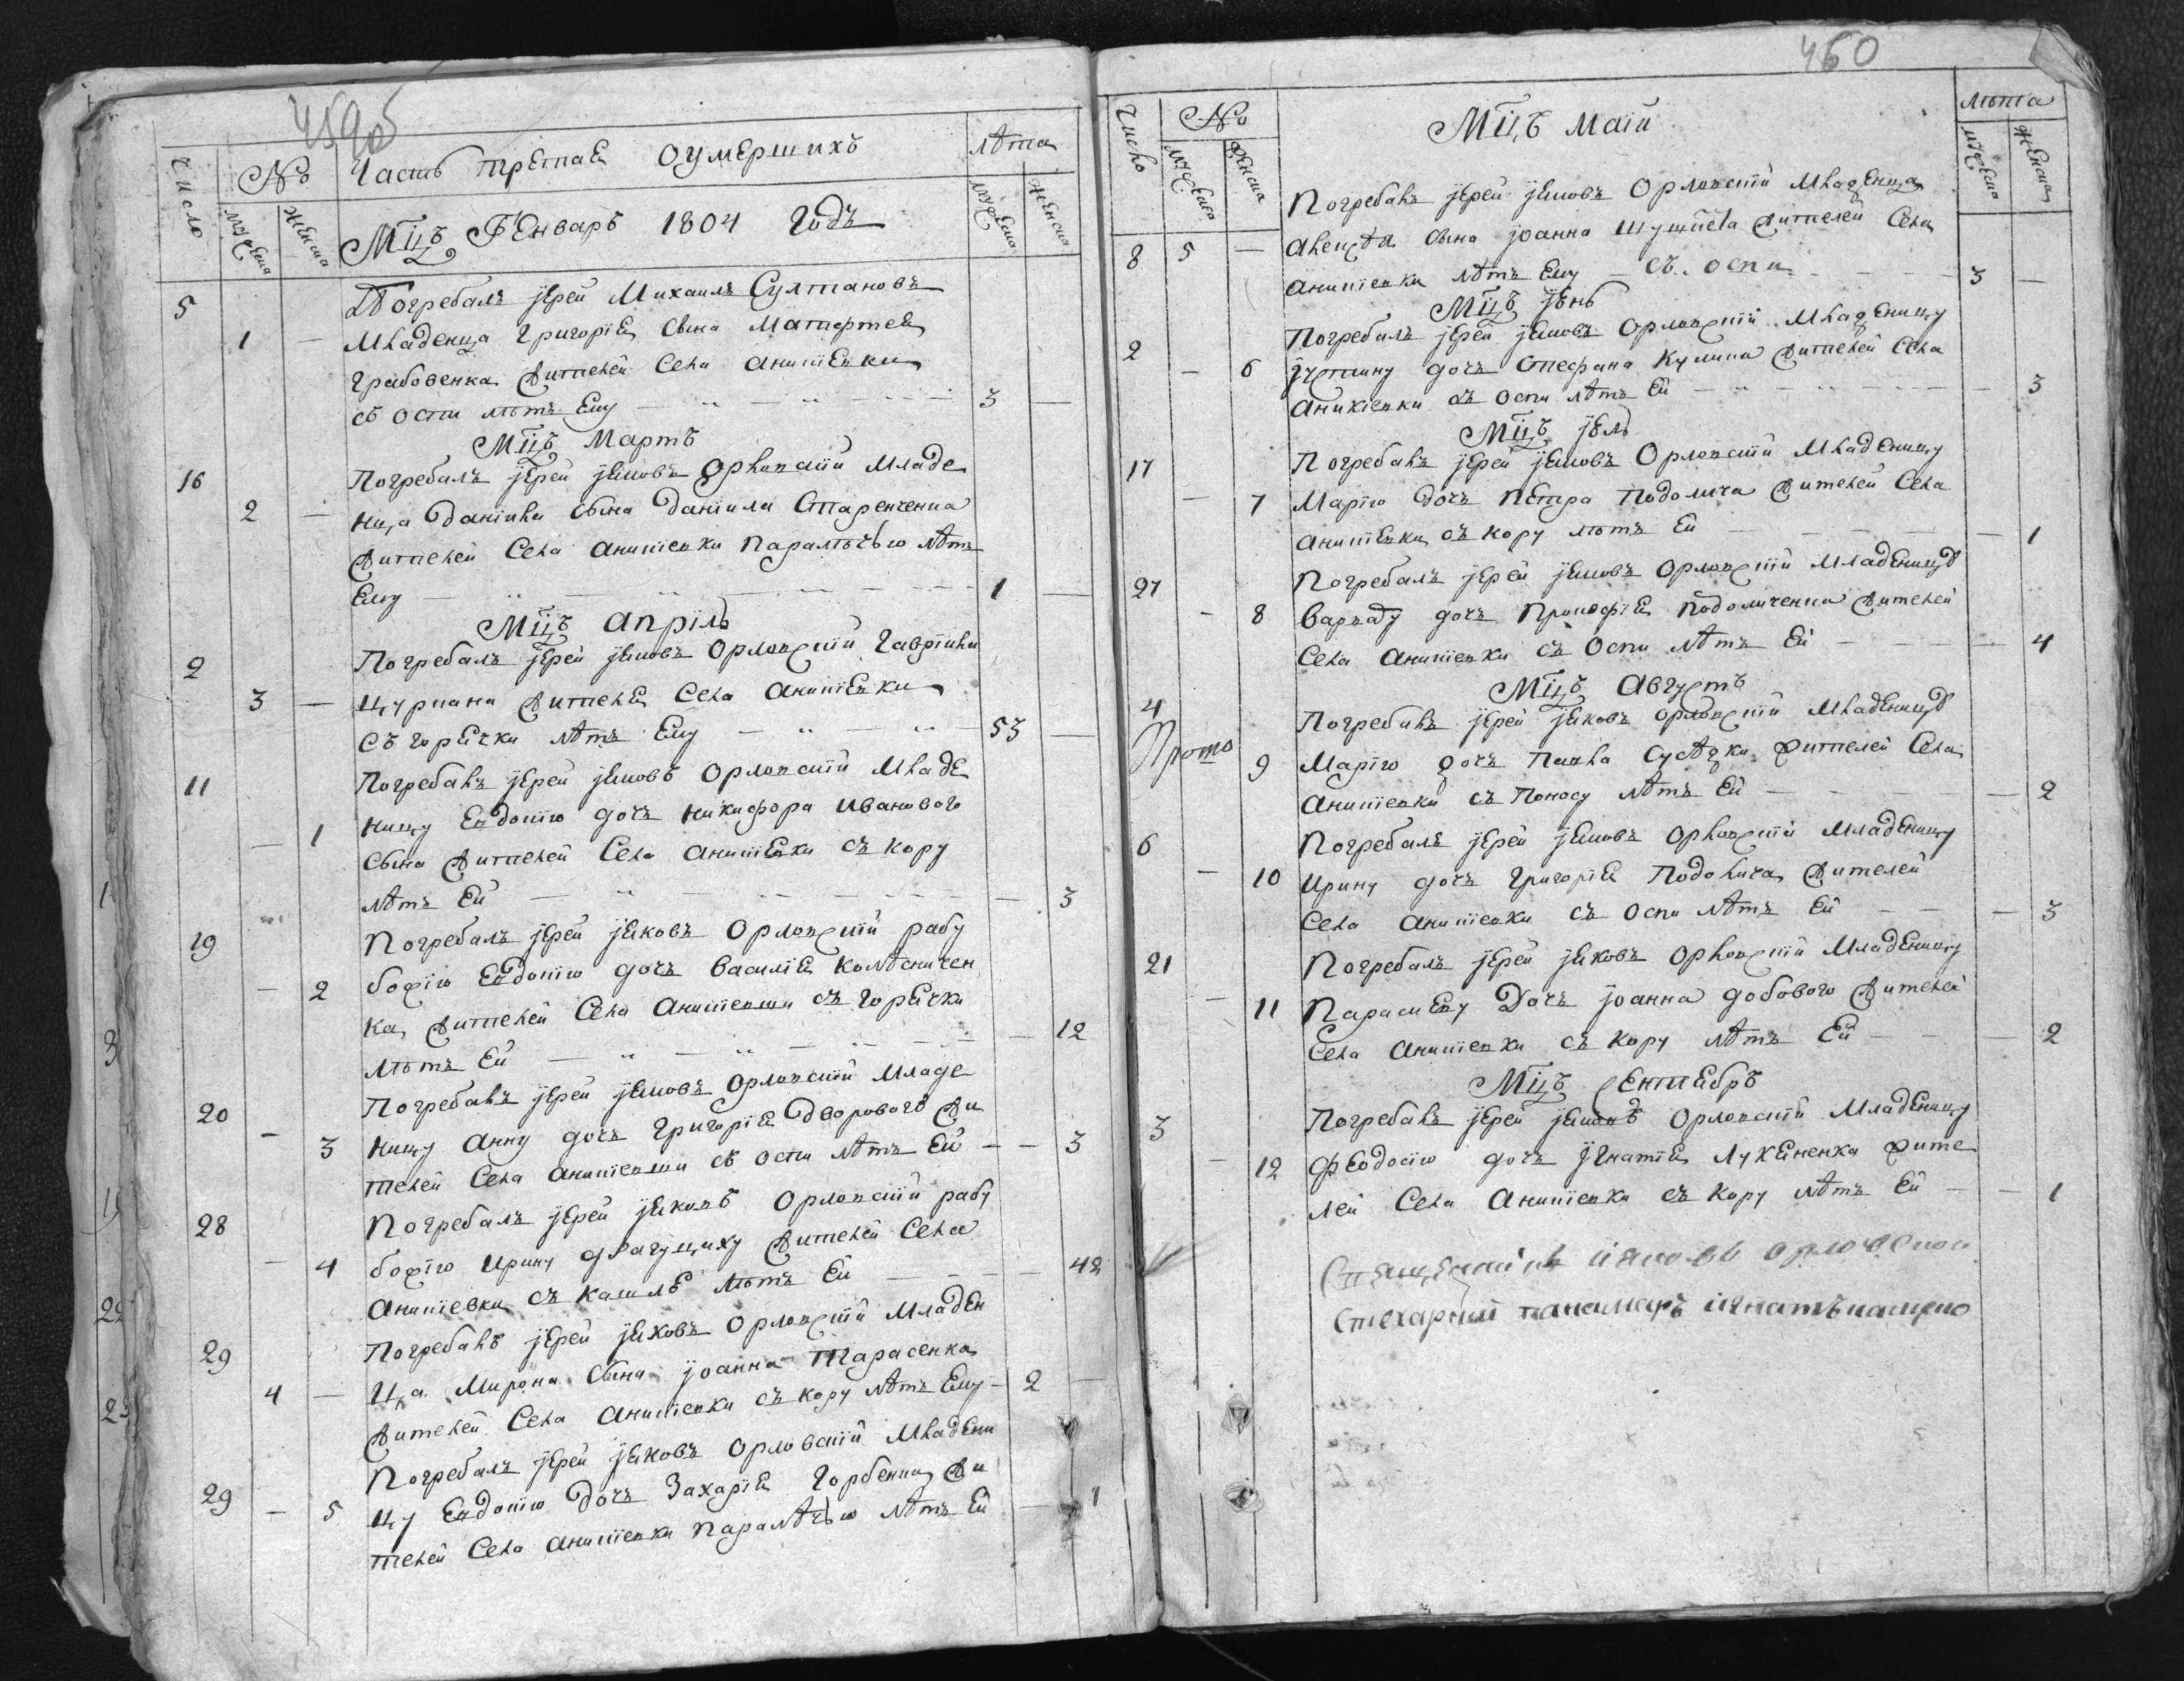 459об
Число № Часть третаѧ оумершихъ лѣта
мужеска женска Мцъ Генварь 1804 Годъ мужеска женска
5 Погребалъ їерей Михаилъ Султановъ
1 — Младенца Григориѧ сына Матфтеѧ
Грабовенка жителей Села Аникїевки
съ оспи лѣтъ Ему — 3 —
Мцъ Мартъ
16 Погребалъ їерей їѧковъ Орловскїй Младе
2 — нца Данїила сына Данїила Старенченка
жителей Села Аникїевки паралѣчью лѣтъ
Ему — 1 —
Мцъ Апрїль
2 Погребалъ їерей їѧковъ Орловскїй Гаврїила
3 — Цуркана жителѧ Села Аникїевки
съ горѧчки лѣтъ Ему — 53 —
11 Погребалъ їерей їѧковъ Орловскїй Младе
— 1 ницу Евдокїю дочъ Никифора Иванового
сына жителей Села Аникїевки съ кору
лѣтъ Ей — — 3
19 Погребалъ їерей їѧковъ Орловскїй рабу
— 2 божїю Евдокїю дочъ Василїѧ Колѣсничен
ка жителей Села Аникїевки съ горѧчки
лѣтъ Ей — — 12
20 Погребалъ їерей їѧковъ Орловскїй Младе
— 3 ницу Анну дочъ Григорїѧ Дворового жи
телей Села Аникїевки съ оспи лѣтъ Ей — — 3
28 Погребалъ їерей їѧковъ Орловскїй рабу
— 4 божїю Ирину жителей Села
Аникїевки съ кашлѧ лѣтъ Ей — 42
29 Погребалъ їерей їѧковъ Орловскїй Младен
4 — ца Мирона сына їоанна Тарасенка
жителей Села Аникїевки съ кору лѣтъ Ему — 2 —
Погребалъ їерей їѧковъ Орловскїй Младени
29 — 5 цу Евдокїю дочъ Захарїѧ Горбенка жи
телей Села Аникїевки паралѣчью лѣтъ Ей — 1
460
Число № Мцъ Маїй лѣта
мужеска женска мужеска женска
Погребалъ їерей їѧковъ Орловскїй Младенца
8 5 — Алеѯѣѧ сына їоанна жителей Села
Аникїевки лѣтъ Ему — съ оспи — 3 —
Мцъ їюнь
2 Погребалъ їерей їѧковъ Орловскїй Младеницу
— 6 їустину дочъ Стефана Кулика жителей Села
Аникїевки съ оспи лѣтъ Ей — 3
Мцъ їюль
17 Погребалъ їерей їѧковъ Орловскїй Младеницу
— 7 Марїю дочъ Петра Подолича жителей Села
Аникїевки съ кору лѣтъ Ей — 1
27 Погребалъ їерей їѧковъ Орловскїй Младеницу
— 8 Варвару дочъ Прокофїѧ Подоличенка жителей
Села Аникїевки съ оспи лѣтъ Ей — 4
Мцъ Августъ
4 Погребалъ їерей їѧковъ Орловскїй Младеницу
Прото 9 Марїю дочъ Павла жителей Села
Аникїевки съ поносу лѣтъ Ей — 2
6 Погребалъ їерей їѧковъ Орловскїй Младеницу
— 10 Ирину дочъ Григорїѧ Подолича жителей
Села Аникїевки съ оспи лѣтъ Ей — 3
21 Погребалъ їерей їѧковъ Орловскїй Младеницу
— 11 Параскеву дочъ їоанна Добового жителей
Села Аникїевки съ кору лѣтъ Ей — 2
Мцъ Сентѧбрь
3 Погребалъ їерей їѧковъ Орловскїй Младеницу
— 12 Феодосїю дочъ їгнатїѧ Лукѧненка жите
лей Села Аникїевки съ кору лѣтъ Ей — 1
Священникъ їяковъ Орловской
Стихарный панамарь игнатъ